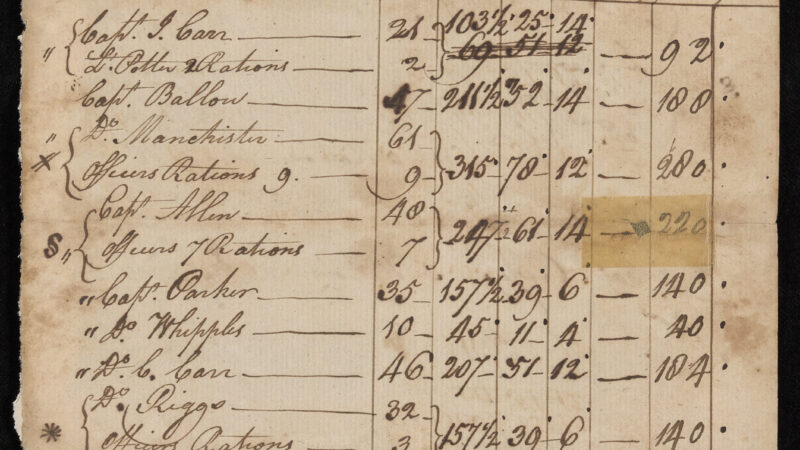 " Capt. J. Carr — 21 103½ 25 14
69 51 12 — 92
Lt. Potter 2 Rations — 2
Capt. Ballou — 47 211½ 52 14 — 188
" Do. Manchister — 61
Officers Rations 9. 9 315 78 12 — 280
Capt. Allen — 48
S " Officers 7 Rations — 7 247½ 61 14 — 220
" Capt. Parker — 35 157½ 39 6 — 140
" Do. Whipples — 10 45 11 4 — 40
" Do. C. Carr — 46 207 51 12 — 184
Do. Riggs — 32
* Officers Rations — 3 157½ 39 6 — 140